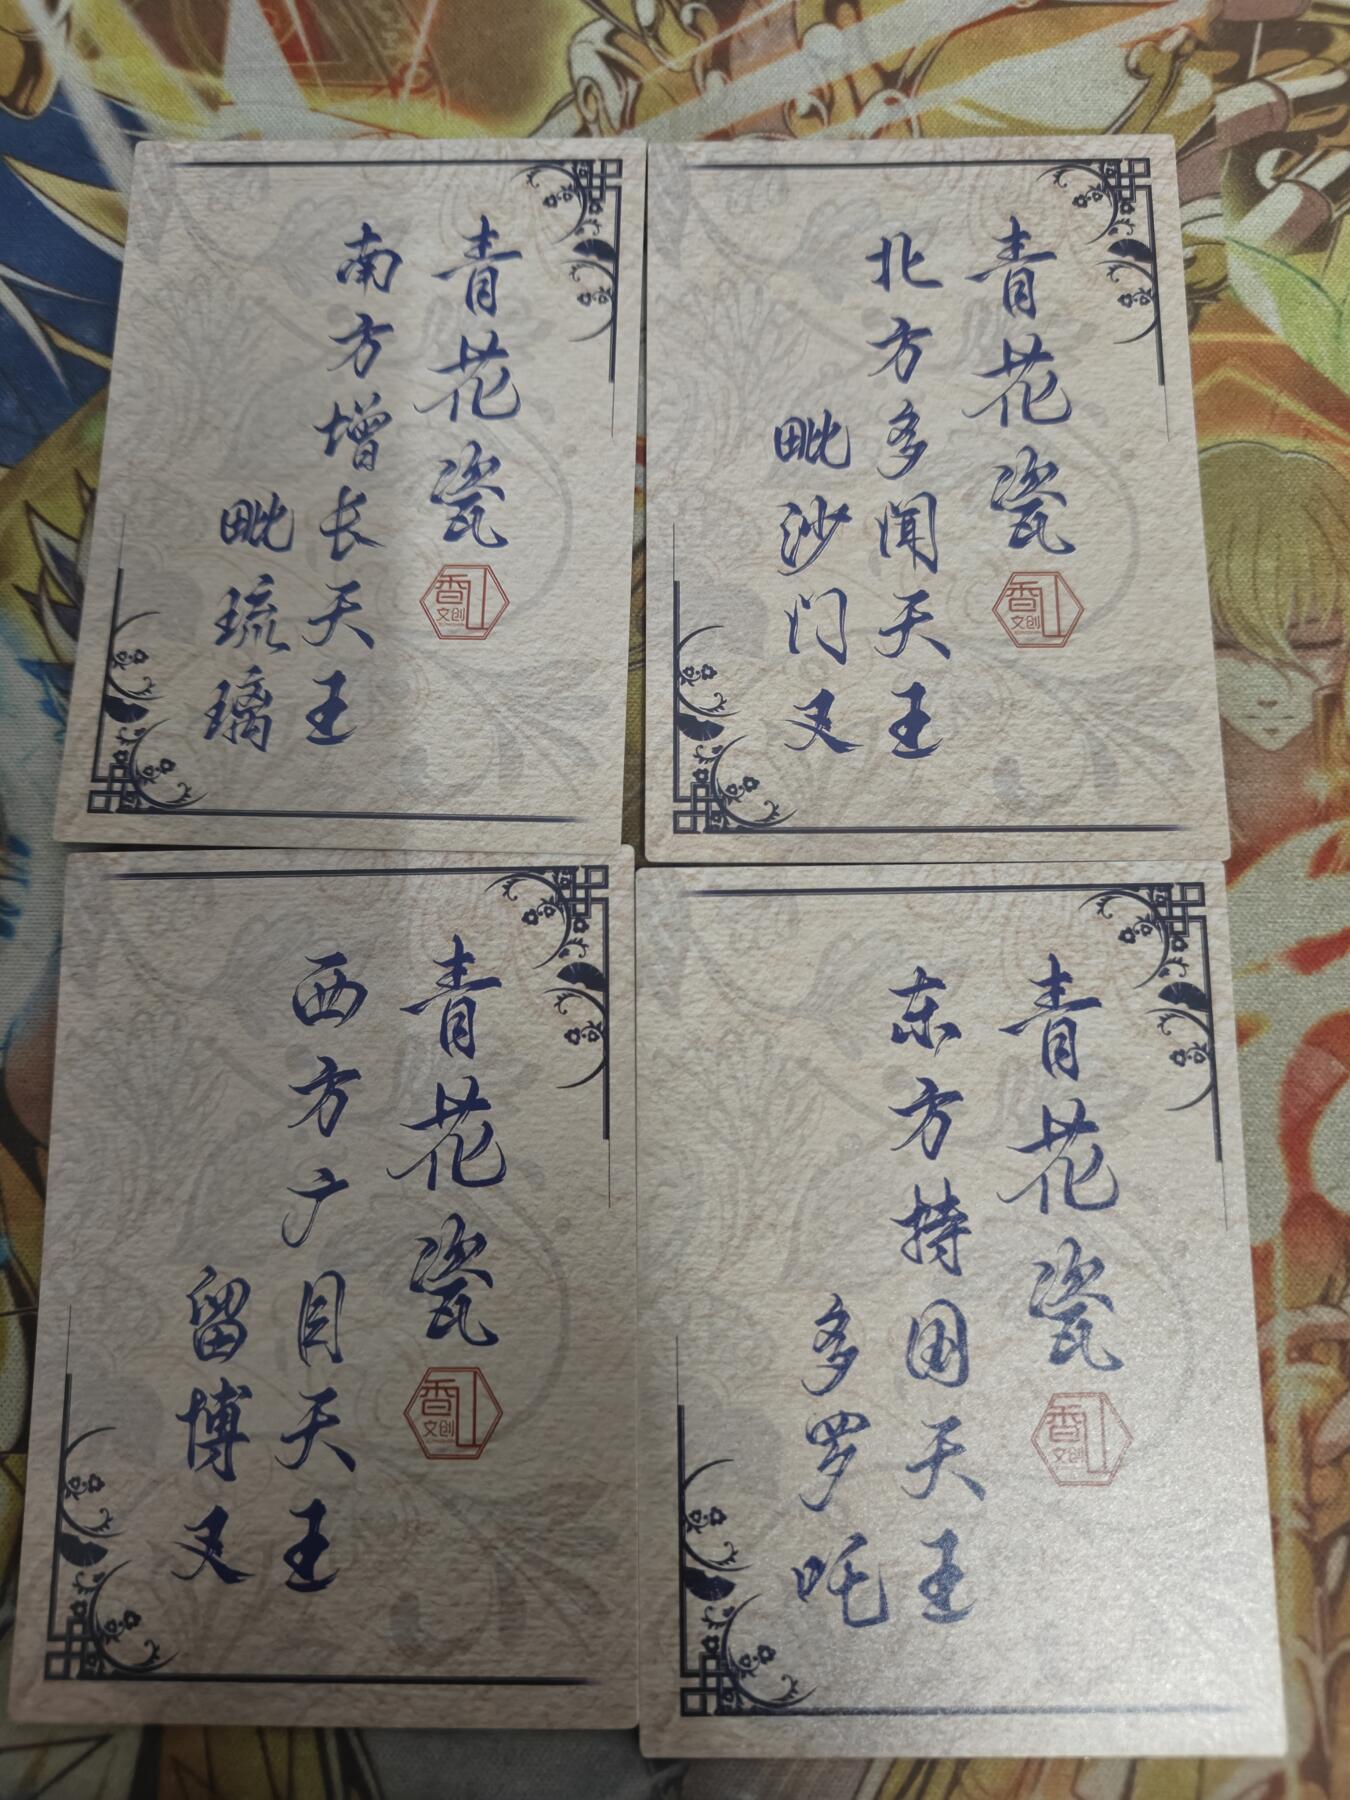 青花瓷
香山
文创
南方增长天王
毗琉璃
青花瓷
香山
文创
北方多闻天王
毗沙门叉
青花瓷
香山
文创
西方广目天王
留博叉
青花瓷
香山
文创
东方持国天王
多罗吒